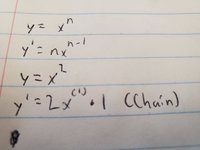 y = xⁿ
y' = nxⁿ⁻¹
y = x²
y' = 2x⁽¹⁾ · 1 (Chain)